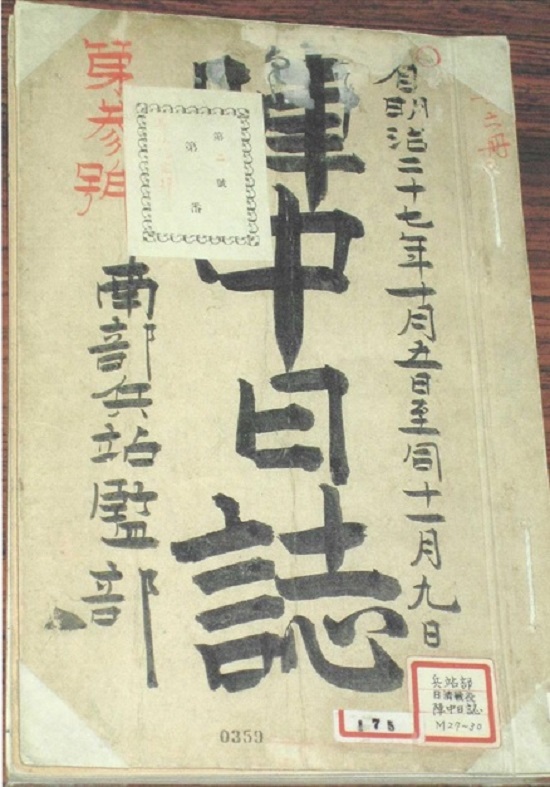 自明治二十七年十月五日至同十一月九日
陣中日誌
南部兵站監部
第参号
第二號
第 番
0359
178
兵站部
日清戦役
陣中日誌
M27-30